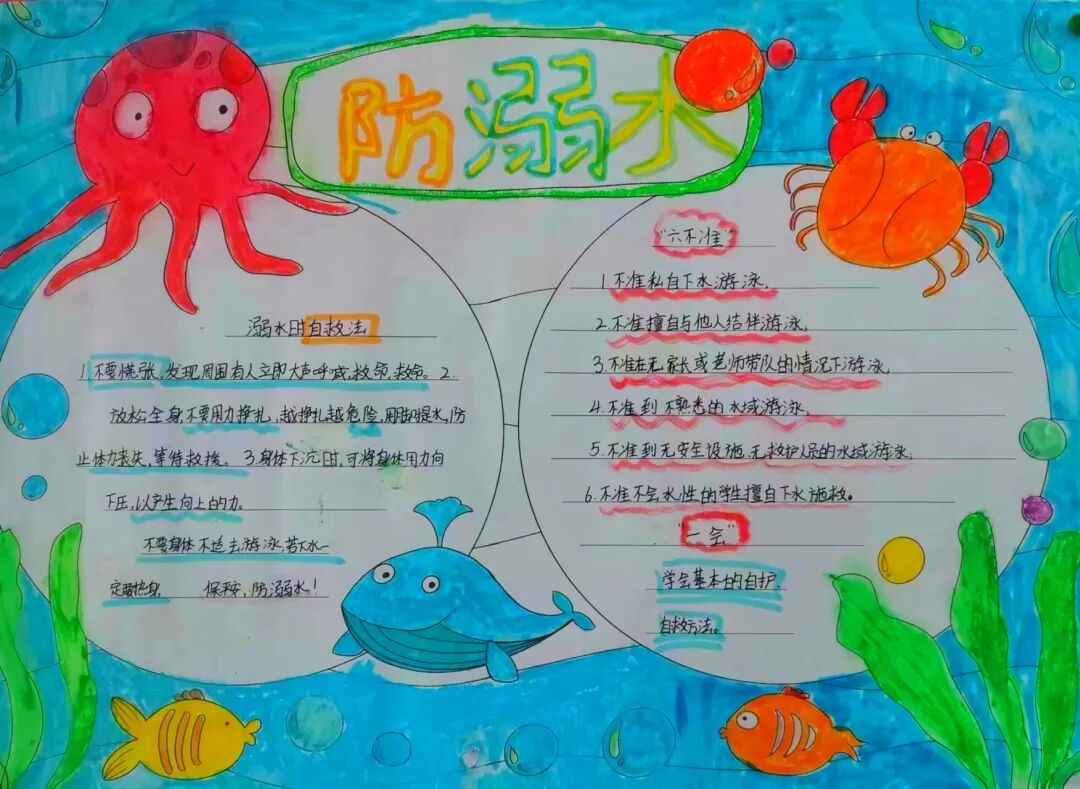 防溺水
溺水时自救法
1.不要慌张,发现周围有人立即大声呼喊,救命,救命。2.
放松全身,不要用力挣扎,越挣扎越危险,用脚踢水,防
止体力丧失,等待救援。3身体下沉时,可将身体用力向
下压,以产生向上的力。
不要身体不适去游泳,若下水一
定要热身, 保平安,防溺水!
"六不准"
1.不准私自下水游泳,
2.不准擅自与他人结伴游泳,
3.不准在无家长或老师带队的情况下游泳,
4.不准到不熟悉的水域游泳,
5.不准到无安全设施,无救护人员的水域游泳,
6.不准不会水性的学生擅自下水施救。
"一会"
学会基本的自护,
自救方法。